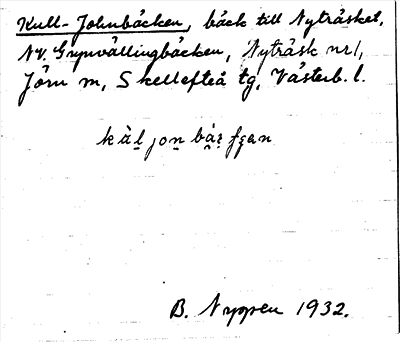 Kull-Johnbäcken, bäck till Nyträsket,
NV. Grynvällingbäcken, Nyträsk nr 1,
Jörn m, Skellefteå tg, Västerb. l.
B. Nyppen 1932.